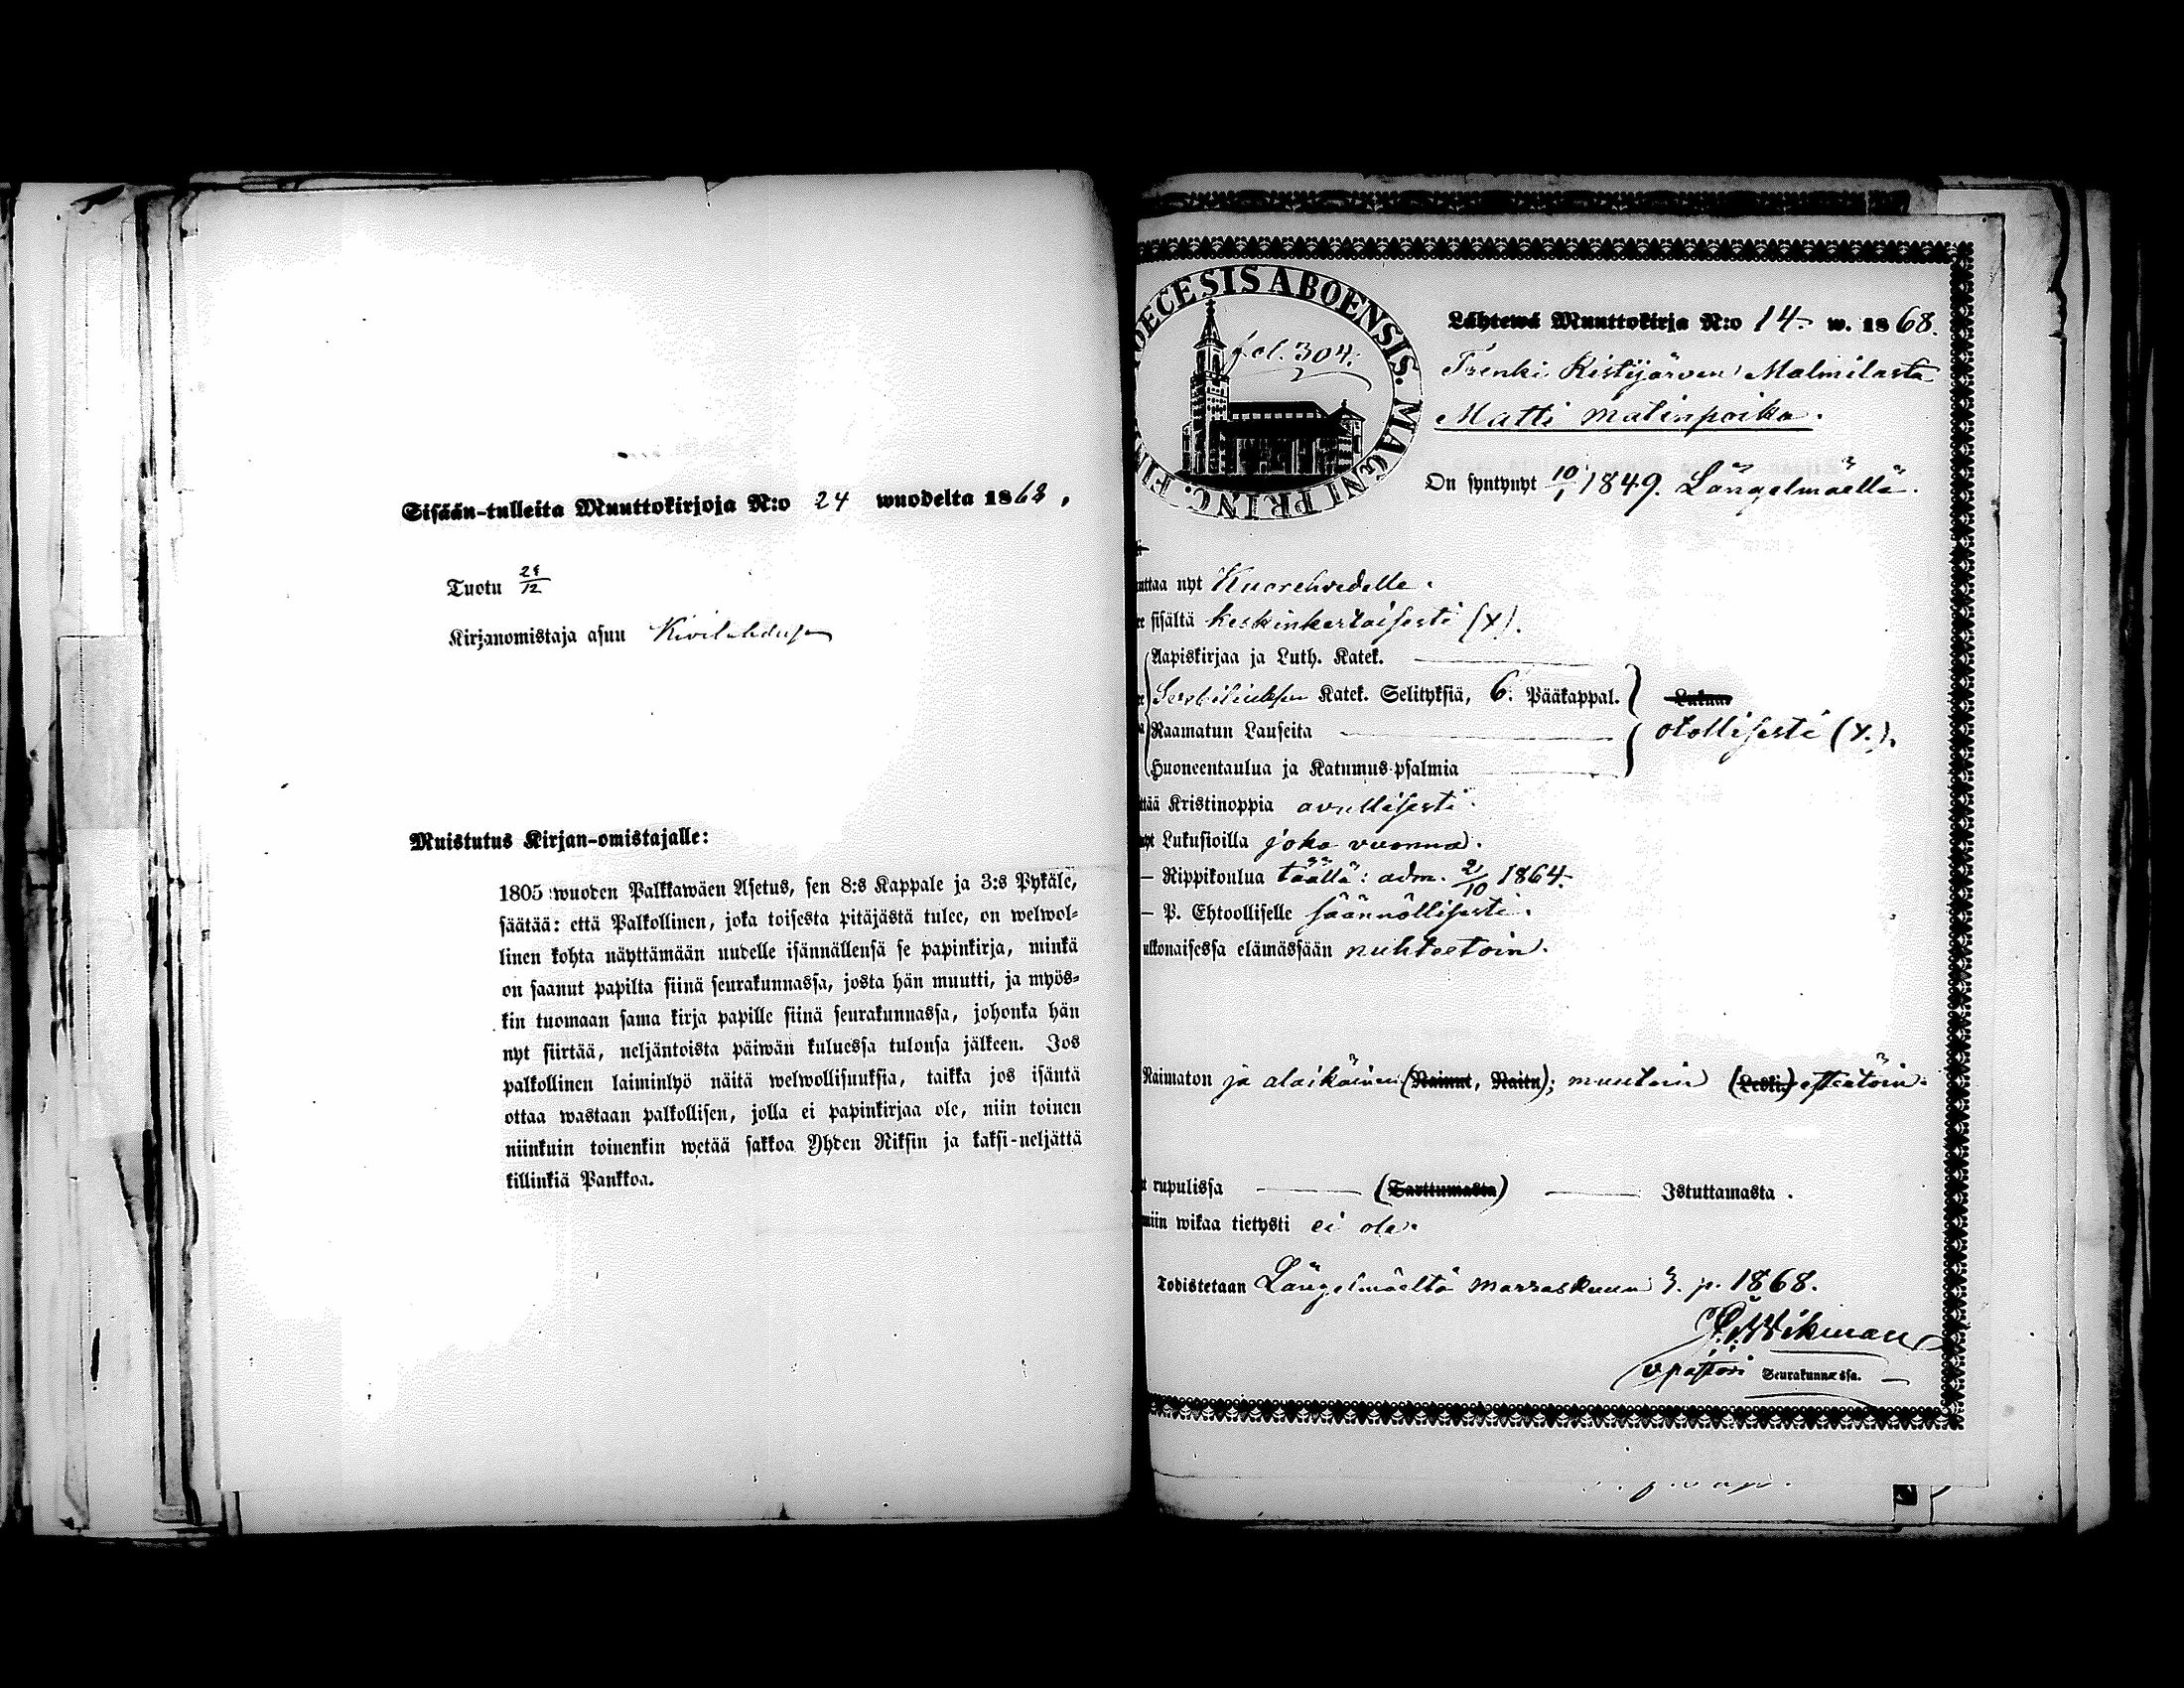 Sisään-tulleita Muuttokirjoja N:o 24 wuodelta 1868,
Tuotu 28/12
Kirjanomistaja asuu
Muistutus Kirjan-omistajalle:
1805 wuoden Palkkawäen Asetus, sen 8:s Kappale ja 3:s Pykäle,
säätää: että Palkollinen, joka toisesta pitäjästä tulee, on welwol-
linen kohta näyttämään uudelle isännällensä se papinkirja, minkä
on saanut papilta siinä seurakunnassa, josta hän muutti, ja myös-
kin tuomaan sama kirja papille siinä seurakunnassa, johonka hän
nyt siirtää, neljäntoista päiwän kuluessa tulonsa jälkeen. Jos
palkollinen laiminlyö näitä welwollisuuksia, taikka jos isäntä
ottaa wastaan palkollisen, jolla ei papinkirjaa ole, niin toinen
niinkuin toinenkin wetää sakkoa Yhden Riksin ja kaksi-neljättä
killinkiä Pankkoa.
OECESIS ABOENSIS. MAGNI PRINC. FIN
fol. 304.
Lähtewä Muuttokirja N:o 14. w. 1868.
Trenki Ristijärven Malmilasta
Matti Matinpoika.
On syntynyt 10/1 1849. Längelmäellä.
uttaa nyt Kuorehvedelle.
sisältä keskinkertaisesti (x).
Aapiskirjaa ja Luth. Katek.
Katek. Selityksiä, 6. Pääkappal. Lukuu
Raamatun Lauseita otollisesti (x.).
Huoneentaulua ja Katumus-psalmia
ttää Kristinoppia avullisesti.
yt Lukusioilla joka vuonna.
— Rippikoulua täällä: adm. 2/10 1864.
— P. Ehtoolliselle säännöllisesti.
ulkonaisessa elämässään nuhteetoin.
Naimaton ja alaikäinen (Nainut, Naitu); muutoin (Leski) esteetöin.
t rupulissa (Tarttumasta) Istuttamasta.
miin wikaa tietysti ei ole.
Todistetaan Längelmäeltä marraskuun 3. p. 1868.
Wikman
v pastori Seurakunnassa.